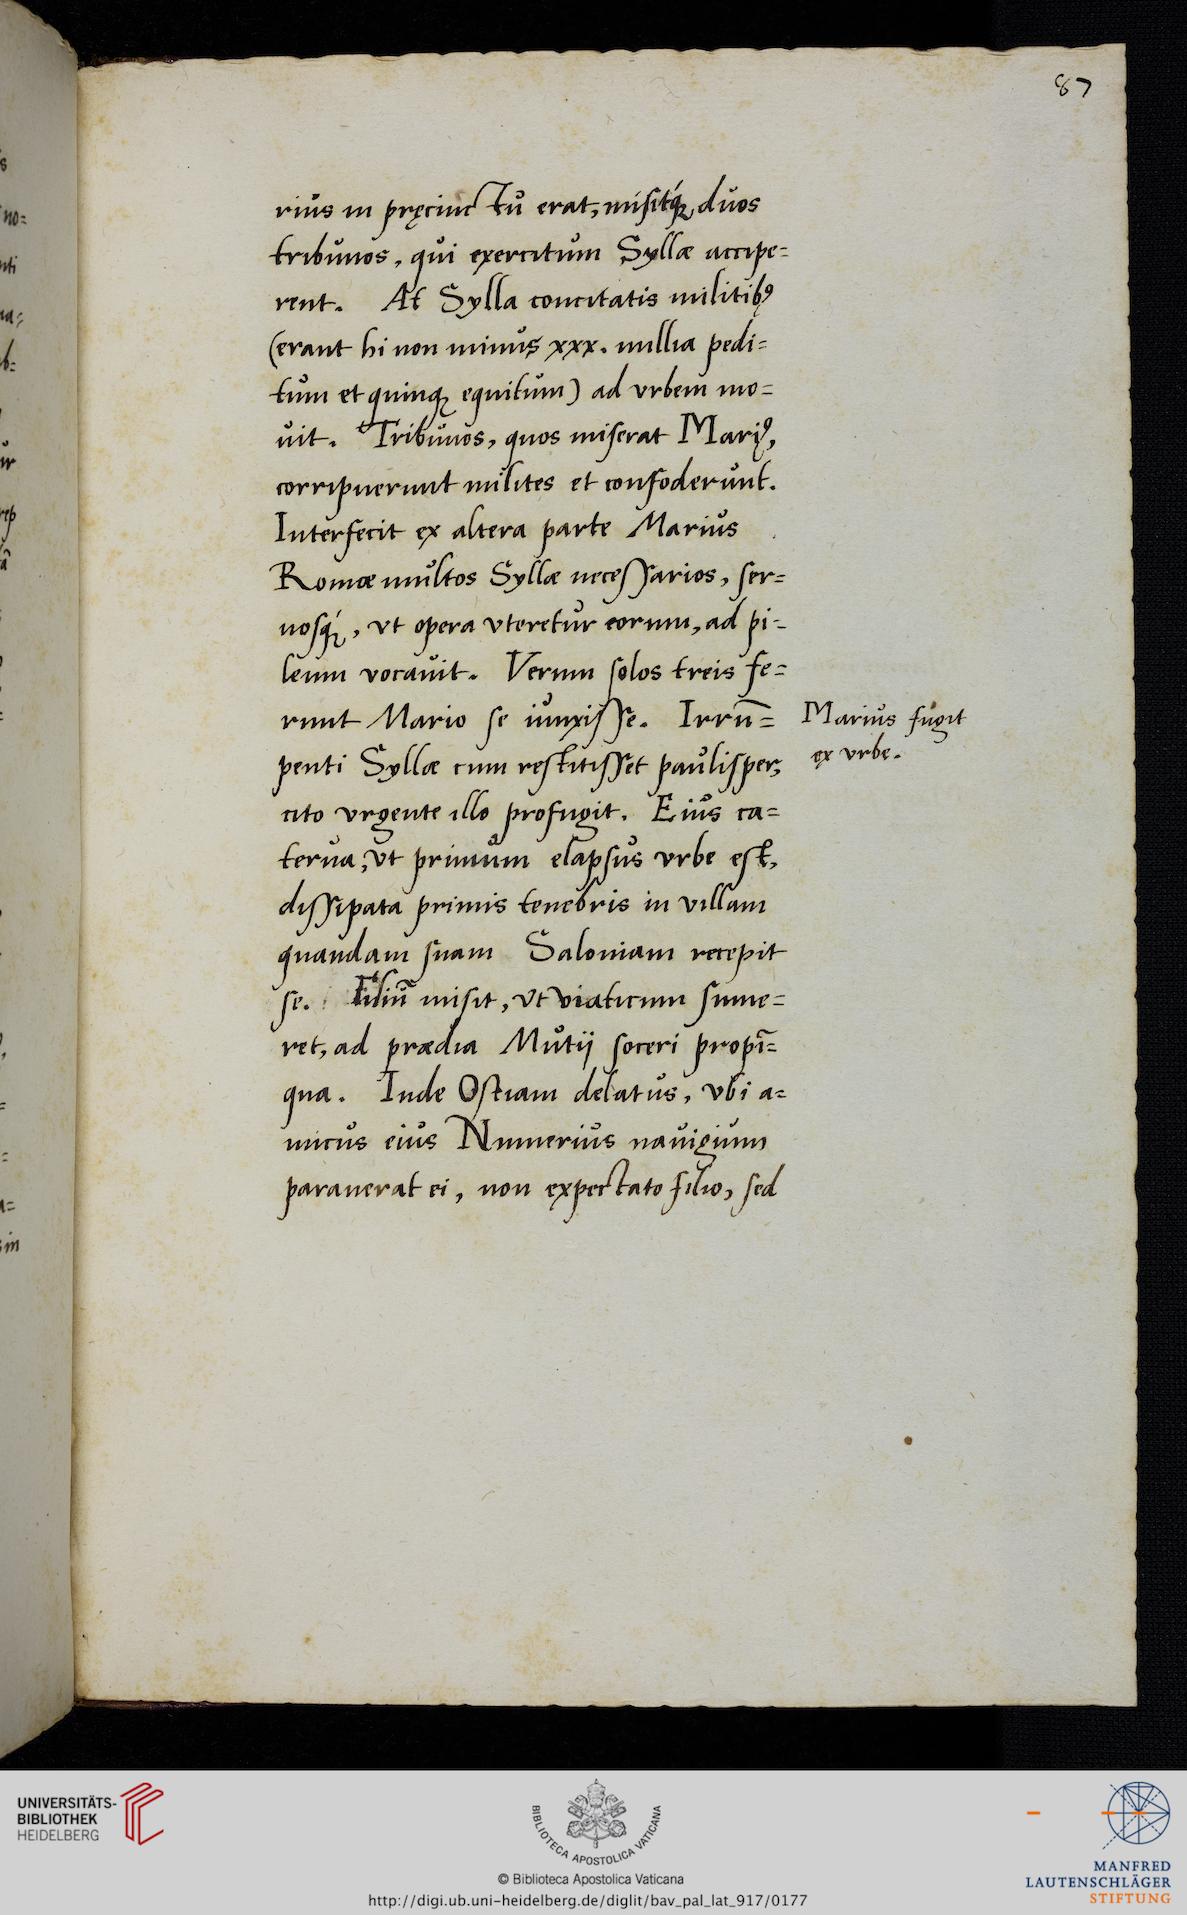 87
rius in pręcinctu erat, misitq́ꝫ duos
tribunos, qui exercitum Syllæ accipe=
rent. At Sylla concitatis militibꝰ
(erant hi non minus xxx. millia pedi=
tum et quinqꝫ equitum) ad vrbem mo=
uit. Tribunos, quos miserat Mariꝰ,
corripuerunt milites et confoderunt.
Interfecit ex altera parte Marius
Romæ multos Syllæ necessarios, ser=
uosq́ꝫ, vt opera vteretur eorum, ad pi=
leum vocauit. Verum solos treis fe=
runt Mario se iunxisse. Irrū=
penti Syllæ cum restitisset paulisper,
cito vrgente illo profugit. Eius ca=
terua, vt primum elapsus vrbe est,
dissipata primis tenebris in villam
quandam suam Saloniam recepit
se. Filiū misit, vt viaticum sume=
ret, ad prædia Mutij soceri propī=
qua. Inde Ostiam delatus, vbi a=
micus eius Numerius nauigium
parauerat ei, non expectato filio, sed
Marius fugit
ex vrbe.
UNIVERSITÄTS-
BIBLIOTHEK
HEIDELBERG
BIBLIOTECA APOSTOLICA VATICANA
© Biblioteca Apostolica Vaticana
http://digi.ub.uni-heidelberg.de/diglit/bav_pal_lat_917/0177
MANFRED
LAUTENSCHLÄGER
STIFTUNG